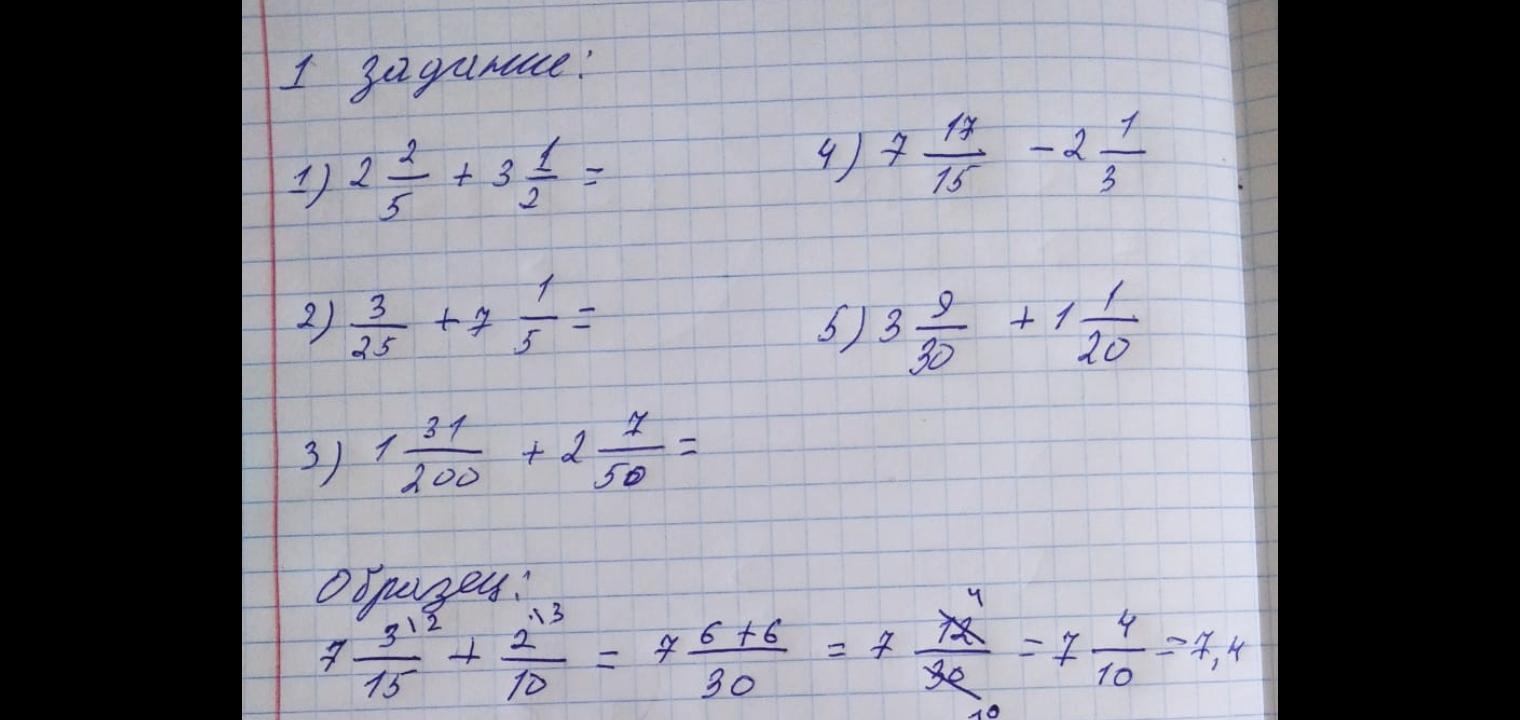 1 задание:
1) 2 2/5 + 3 1/2 =
4) 7 17/15 - 2 1/3
2) 3/25 + 7 1/5 =
5) 3 9/30 + 1 1/20
3) 1 31/200 + 2 7/50 =
Образец:
7 3\2/15 + 2\3/10 = 7 6+6/30 = 7 12 4/30 10 = 7 4/10 = 7,4